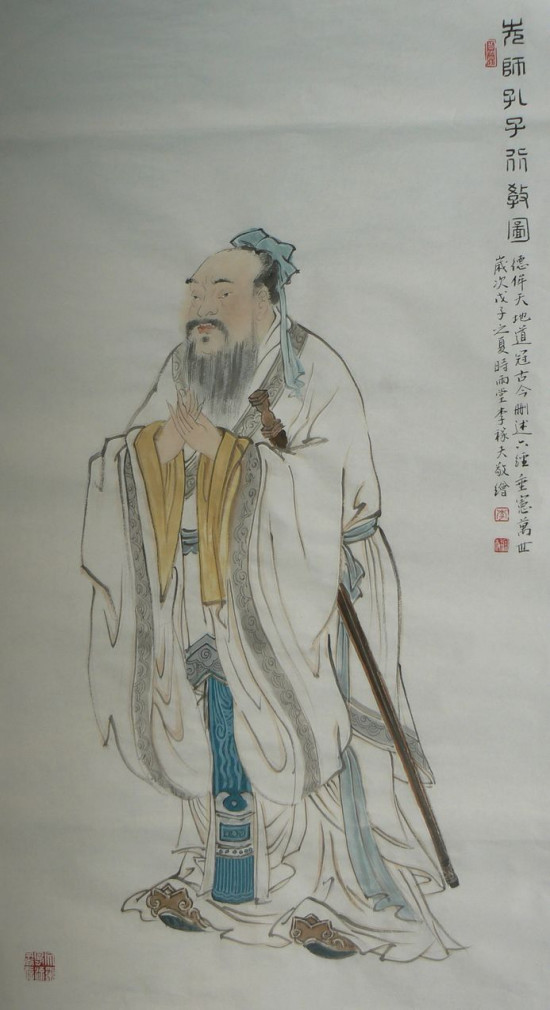 先師孔子行教圖
德侔天地道冠古今刪述六經垂憲萬世
歲次戊子之夏時雨堂李稼天敬繪